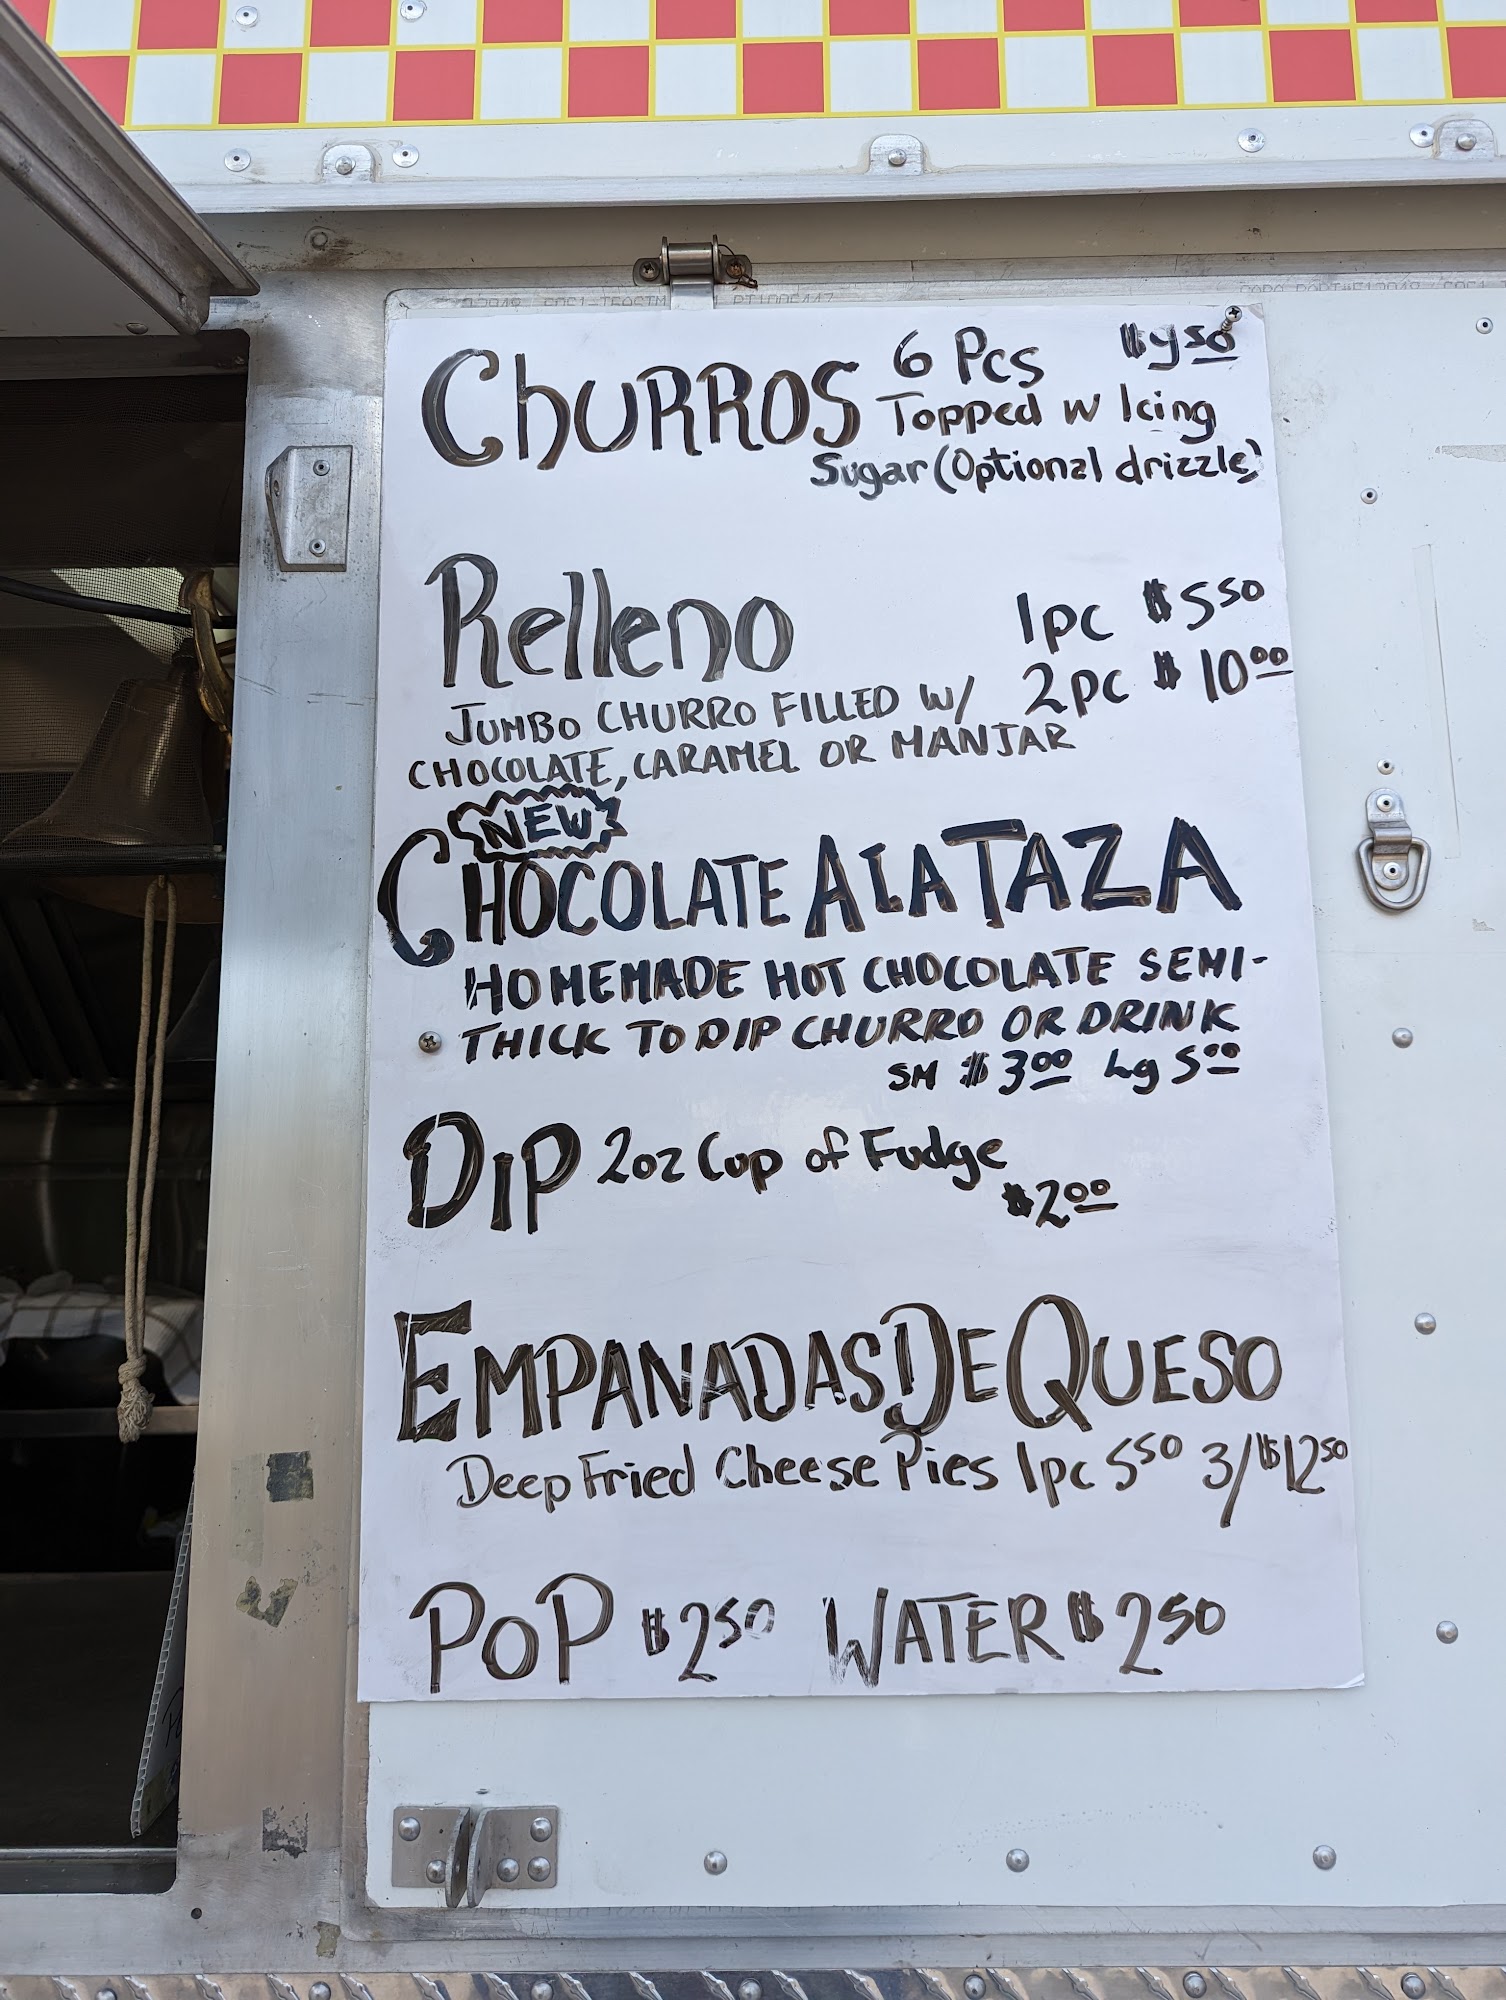 Churros 6 Pcs $950
Topped w Icing
Sugar (Optional drizzle)
Relleno 1pc $550
2pc $1000
JUMBO CHURRO FILLED W/
CHOCOLATE, CARAMEL OR MANJAR
NEW
CHOCOLATE A LA TAZA
HOMEMADE HOT CHOCOLATE SEMI-
THICK TO DIP CHURRO OR DRINK
SM $300 Lg 500
DIP 2oz Cup of Fudge
$200
EMPANADAS DE QUESO
Deep Fried Cheese Pies 1pc 550 3/$1250
POP $250 WATER $250